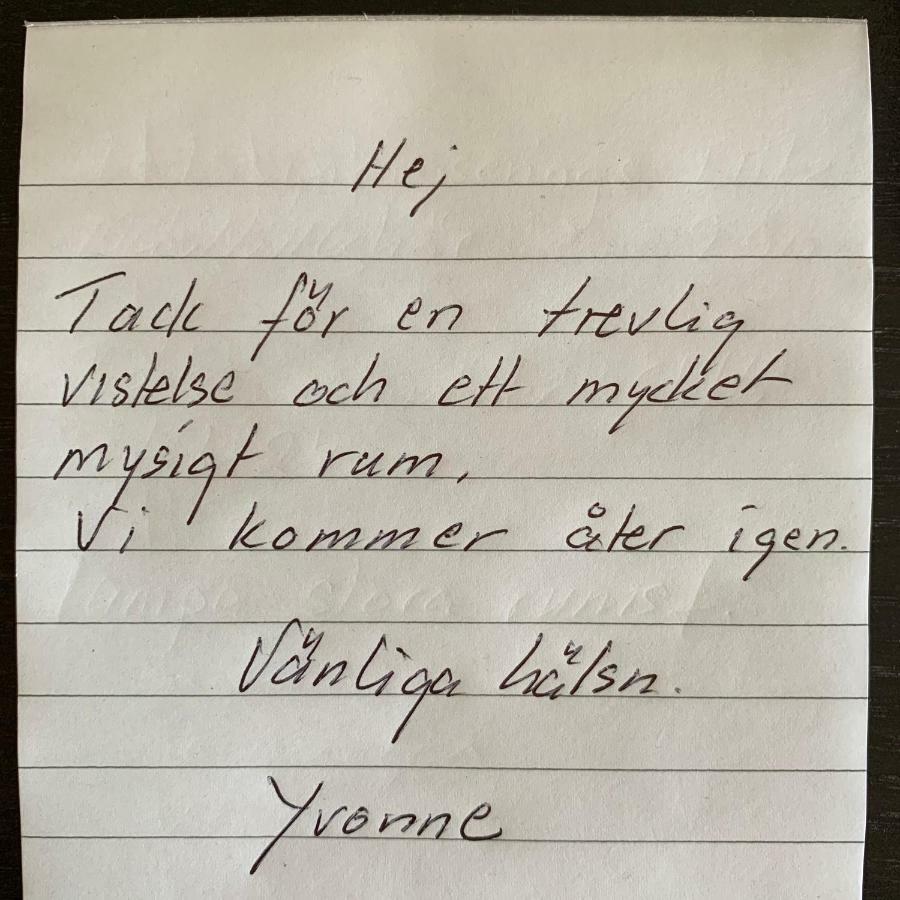 Hej
Tack för en trevlig
vistelse och ett mycket
mysigt rum,
Vi kommer åter igen.
Vänliga hälsn.
Yvonne